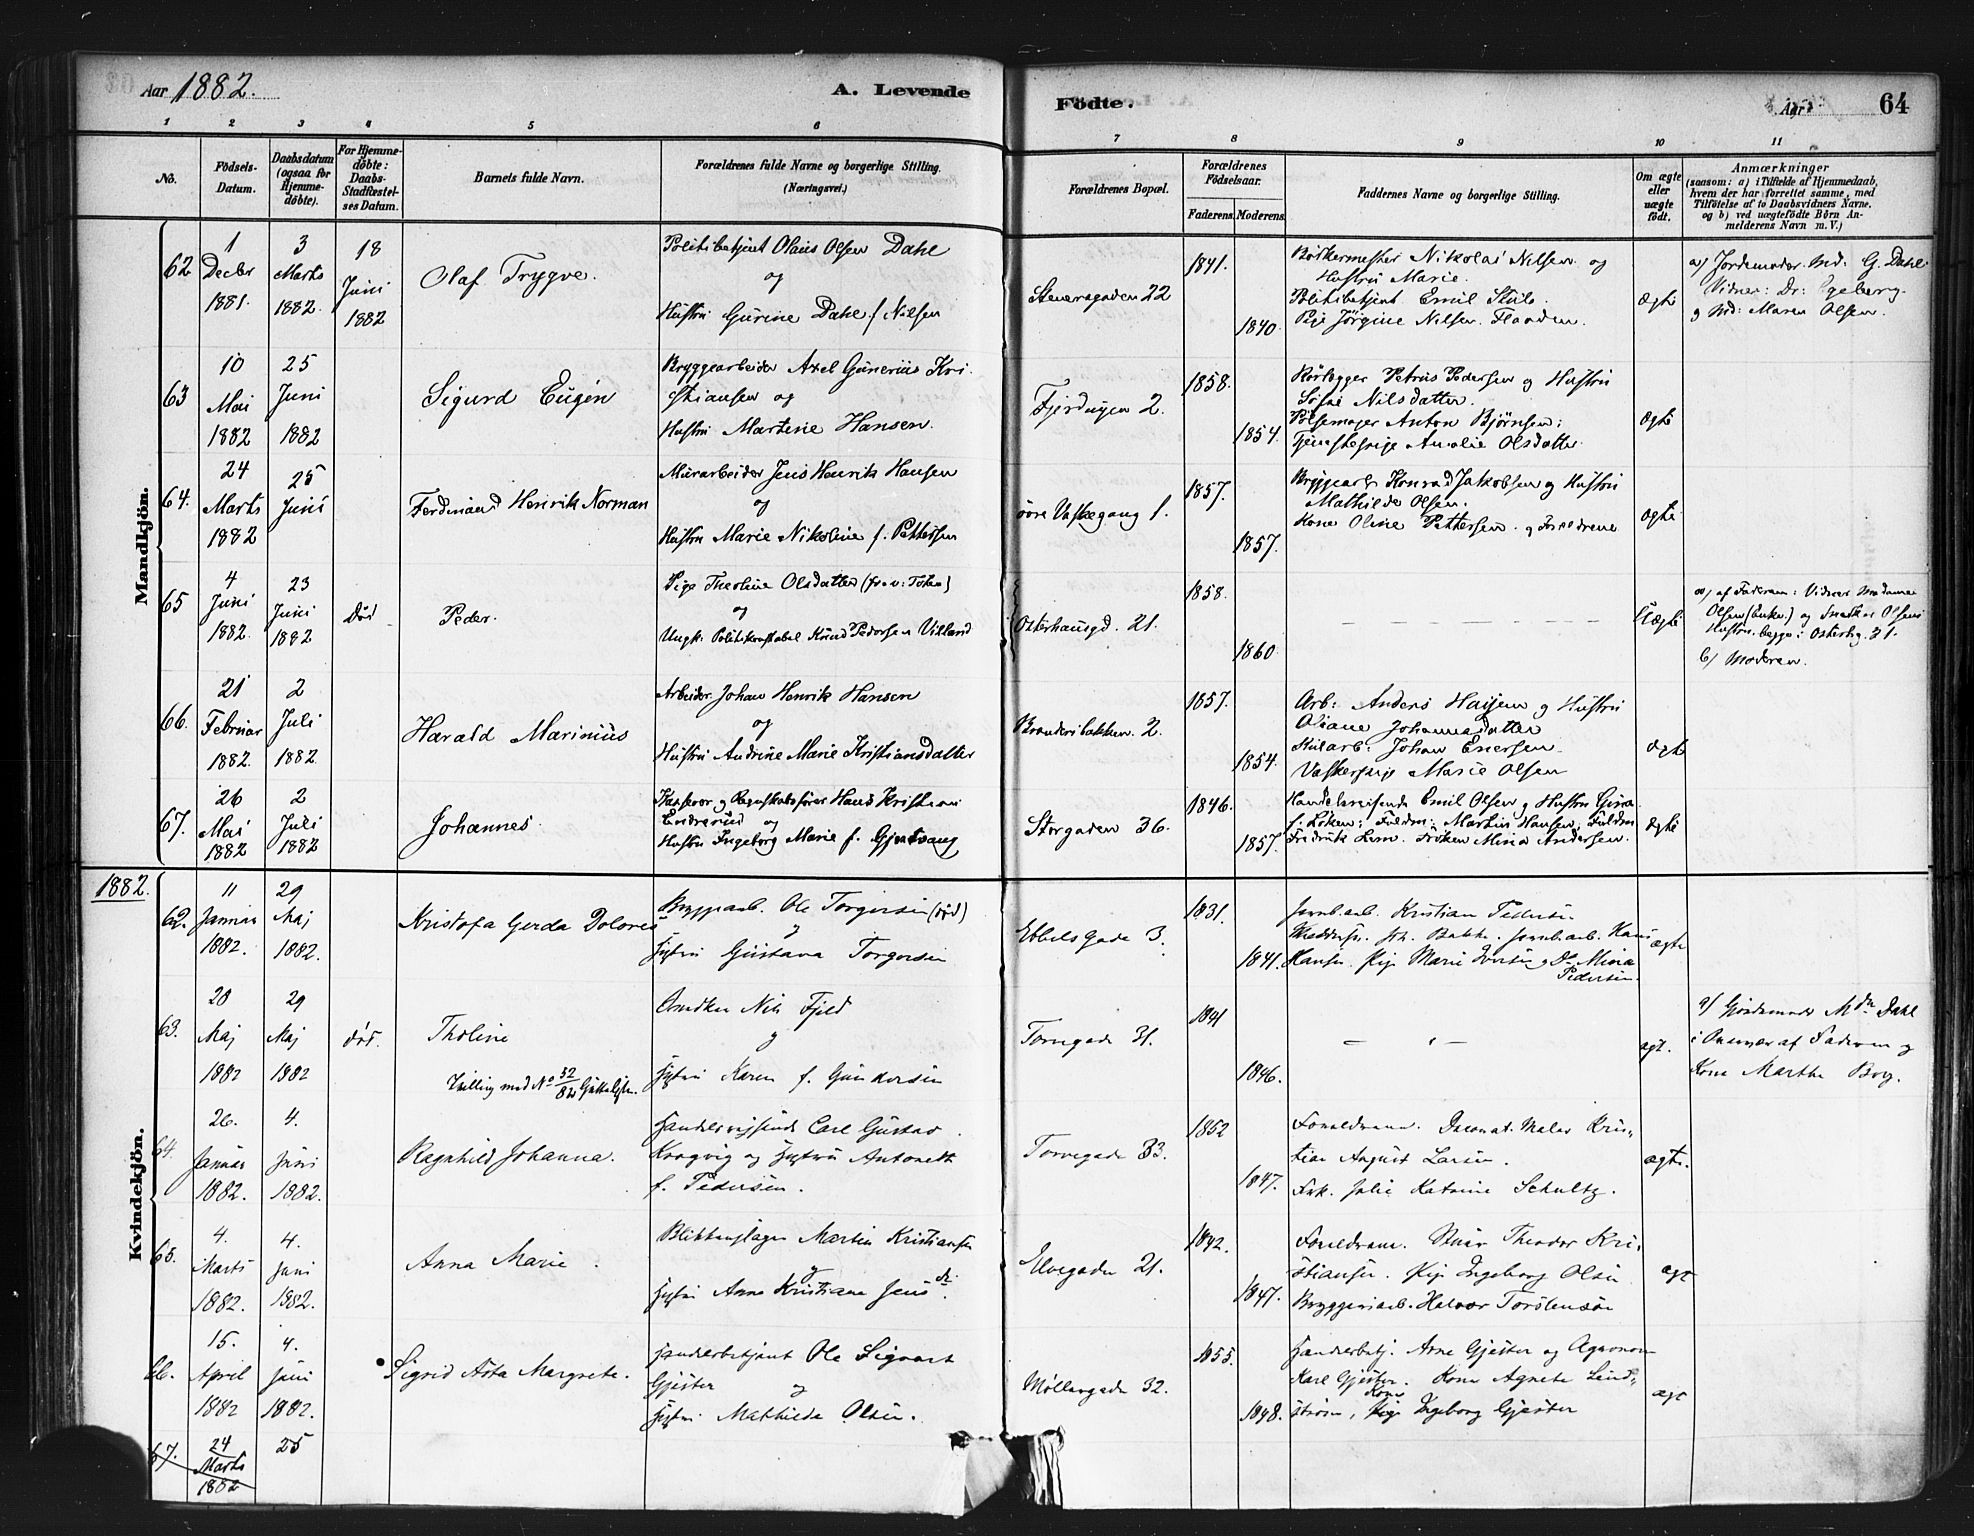 Aar 1882.
A. Levende
Födte.
Aar
64
1 2 3 4 5 6 7 8 9 10 11
No.
Födsels-Datum.
Daabsdatum (ogsaa for Hjemme-döbte).
For Hjemme-döbte: Daabs-Stadfæstel-ses Datum.
Barnets fulde Navn.
Forældrenes fulde Navne og borgerlige Stilling.
(Næringsvei.)
Forældrenes Bopæl.
Forældrenes Födselsaar.
Faderens. Moderens.
Faddernes Navne og borgerlige Stilling.
Om ægte eller uægte födt.
Anmærkninger
(saasom: a) i Tilfælde af Hjemmedaab,
hvem der har forrettet samme, med
Tilföielse af to Daabsvidners Navne.
og b) ved uægtefödte Börn An-
melderens Navn m. V.)
Mandkjön.
62
1 Decbr 1881.
3 Marts 1882.
18 Juni 1882
Olaf Trygve.
Politibetjent Olaus Olsen Dahl
og
Hustru Gurine Dahl f. Nilsen
Steensgaden 22
1841.
1840.
Nikolai Nilsen og
Hustru Marie.
Politibetjent Emil
Pige Jörgine Nilsen
ægte
a) Jordemoder Md. G. Dahl
Vidner: Dr: Egeberg.
og Md: Maren Olsen.
63
10 Mai 1882
25 Juni 1882
Sigurd Eugén
Bryggearbeider Axel Gunerius Kri-
stiansen og
Hustru Martine Hansen.
Fjerdingen 2.
1858.
1854.
Rörlægger Petrus Pedersen og Hustru
Sofie Nilsdatter.
Pölsemager Anton Bjørnsen:
Tjenestepige Amalie Olsdatter
ægte
64.
24 Marts 1882
25 Juni
Ferdinand Henrik Norman
Murarbeider Jens Henrik Hansen
og
Hustru Marie Nikoline f. Pettersen
övre Vaskegang 1.
1857.
1857.
Bryggearb Konrad Jakobsen og Hustru
Mathilde Olsen.
Kone Oline Pettersen og Forældrene
ægte
65
4 Juni 1882.
23 Juni 1882
Död
Peder.
Pige Theoline Olsdatter
og
Ungk. Politikonstabel Knud Pedersen Villand
Osterhausgd. 21.
1858.
1860
Uægte
a) af Faderen: Vidner Madame
Olsen (Enke.) og Snedker Olsens
Hustru begge i Osterhg. 21.
b) Moderen.
66.
21 Februar 1882.
2 Juli 1882.
Harald Marinius
Arbeider Johan Henrik Hansen
og
Hustru Andrine Marie Kristiansdatter
Brenneribakken 2.
1857.
1854.
Arb: Anders og Hustru
Oliane Johannesdatter
Johan Enersen
Vaskerpige Marie Olsen
ægte
67.
26 Mai 1882
2 Juli 1882
Johannes.
Kasserer og Regnskabsförer Hans Kristian
og
Hustru Ingeborg Marie f. Gjestvang
Storgaden 36.
1846.
1857.
Handelsreisende Emil Olsen og Hustru
f. Löken: Fuldm: Martin Hansen, Fuldm
Fredrik Lem. Fröken Mina Andersen.
ægte
1882.
Kvindekjön.
62.
11 Januar 1882.
29 Maj 1882.
Kristofa Gerda Dolores
Bryggearb. Ole Torgersen (död)
og
Hustru Gustava Torgersen
Ebbelsgade 3.
1831.
1841.
Jernb.arb. Kristian Pedersen
Joh. Bakke. Jernb.arb. Hans
Hansen. Pige Marie Iversen og Do Mina
Pedersen.
ægte
63.
20 Maj 1882
29 Maj 1882
död.
Tholine
Tvilling med No 32/82
Snedker Nils Fjeld
og
Hustru Karen f. Gundersen
Torvegade 31.
1841
1846.
ægt.
a) Gjordemoder Mdm Dahl
i Nærvær af Faderen og
Kone Marthe Berg.
64.
26. Januar 1882.
4. Juni 1882.
Ragnhild Johanna.
Handelsrejsende Carl Gustav
Kragvig og Hustru Antonette
f. Pedersen.
Torvegade 33.
1852
1847.
Forældrene. Decorat. Maler Kris-
tian August Larsen.
Frk. Julie Katrine Schultz.
ægte.
65.
4. Marts 1882.
4. Juni 1882.
Anna Marie.
Blikkenslager Martin Kristiansen
og
Hustru Anne Kristiane Jensdr.
Elvegaden 21.
1842.
1847.
Forældrene. Theodor Kri-
stiansen. Pige Ingeborg Olsen
Bryggeriarb. Halvor Torstensen
ægt
66.
15. April 1882
4. Juni 1882.
Sigrid Asta Margrete.
Handelsbetjent Ole Sigvart
Gjester og
Hustru Mathilde Olsen.
Møllergade 32.
1855.
1848.
Handelsbetj. Arne Gjester og Agronom
Karl Gjester. Kone Agnete Lind-
ström, Kone Ingeborg Gjester
ægt
67.
24 Marts 1882
25